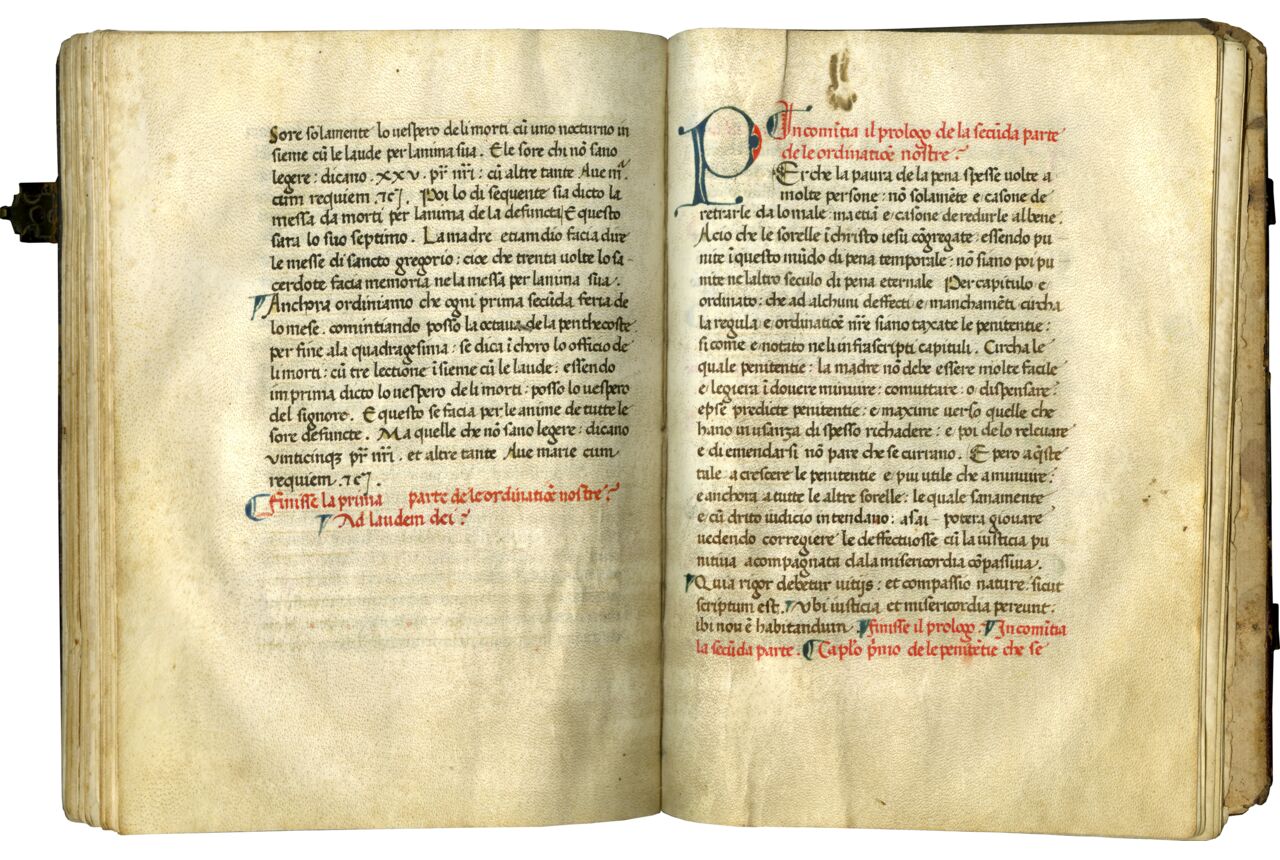 Sore solamente lo uespero deli morti cũ uno nocturno in
sieme cũ le laude per lanima sua. E le sore chi nõ sano
legere: dicano .xxv. pr̃ nr̃i: cũ altre tante Aue m̃.
cum requiem .⁊c̃. Poi lo di sequente sia dicto la
messa da morti per lanima de la defuncta E questo
sara lo suo septimo. La madre etiamdio facia dire
le messe di sancto gregorio: cioe che trenta uolte lo sa-
cerdote facia memoria ne la messa per lanima sua.
Anchora ordiniamo che ogni prima secũda feria de
lo mese. comintiando posso la octaua de la penthecoste
per fine ala quadragesima: se dica ĩ choro lo officio de
li morti: cũ tre lectione ĩsieme cũ le laude: essendo
im prima dicto lo uespero deli morti: posso lo uespero
del signore. E questo se facia per le anime de tutte le
sore defuncte. Ma quelle che nõ sano legere: dicano
uinticinqꝫ pr̃ nr̃i. et altre tante Aue marie cum
requiem .⁊c̃.
Finisse la prima parte de le ordinatiõe nostre:
Ad laudem dei:
Incomĩtia il prologo de la secũda parte
de le ordinatiõe nõstre:
PErche la paura de la pena spesse uolte a
molte persone: nõ solamẽte e casone de
retrarle da lo male: ma etiã e casone de redurle al bene.
Acio che le sorelle ĩ christo iesu cõgregate: essendo pu
nite ĩ questo mũdo di pena temporale: nõ siano poi pu
nite ne laltro seculo di pena eternale Per capitulo e
ordinato: che ad alchuni deffecti e manchamẽti circha
la regula e ordinatiõe nr̃e siano taxate le penitentie:
si come e notato neli infrascripti capituli. Circha le
quale penitentie: la madre nõ debe essere molte facile
e legiera ĩ douere minuire: comuttare: o dispensare:
epse predicte penitentie: e maxime uerso quelle che
hano in usanza di spesso richadere: e poi de lo releuare
e di emendarsi nõ pare che se curiano. E pero a q̃ste
tale a crescere le penitentie e piu utile che a minuire:
e anchora a tutte le altre sorelle: le quale sanamente
e cũ drito iudicio intendano: asai potera giouare
uedendo corregiere le deffectuosse cũ la iusticia pu
nitiua acompagnata dala misericordia cõpassiua.
Quia rigor debetur uitijs: et compassio nature. sicut
scriptum est. Vbi iusticia et misericordia pereunt.
ibi non ẽ habitandum. Finisse il prologo. Incomĩtia
la secũda parte. Capło p̃mo de le penitẽtie che se